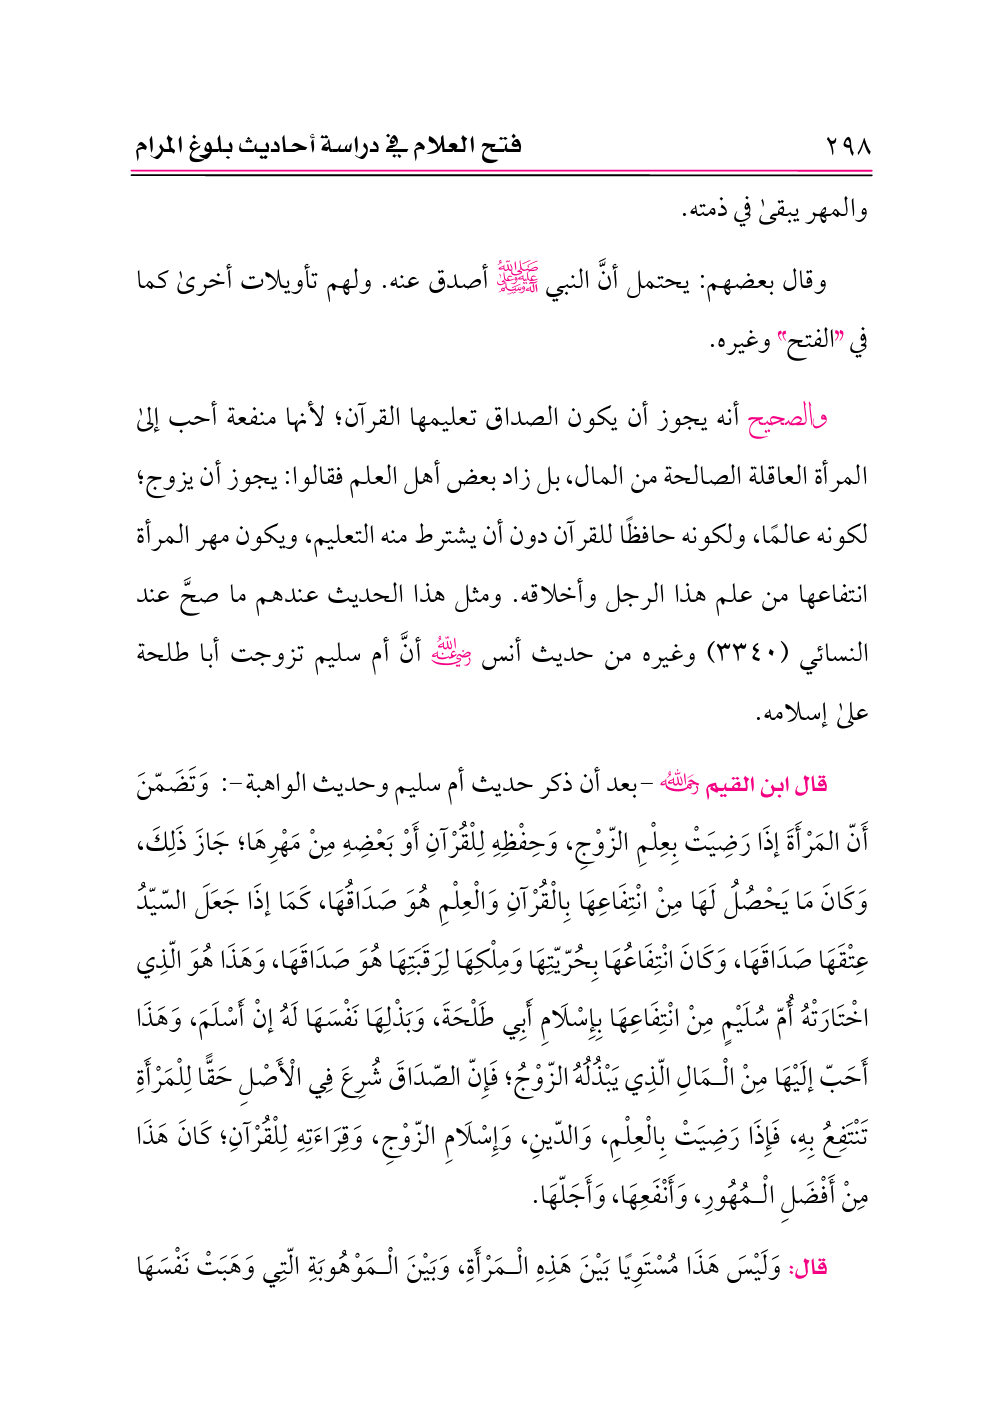 ٢٩٨ فتح العلام في دراسة أحاديث بلوغ المرام
والمهر يبقىٰ في ذمته.
وقال بعضهم: يحتمل أنَّ النبي ﷺ أصدق عنه. ولهم تأويلات أخرىٰ كما
في "الفتح" وغيره.
والصحيح أنه يجوز أن يكون الصداق تعليمها القرآن؛ لأنها منفعة أحب إلىٰ
المرأة العاقلة الصالحة من المال، بل زاد بعض أهل العلم فقالوا: يجوز أن يزوج؛
لكونه عالمًا، ولكونه حافظًا للقرآن دون أن يشترط منه التعليم، ويكون مهر المرأة
انتفاعها من علم هذا الرجل وأخلاقه. ومثل هذا الحديث عندهم ما صحَّ عند
النسائي (٣٣٤٠) وغيره من حديث أنس رضي الله عنه أنَّ أم سليم تزوجت أبا طلحة
علىٰ إسلامه.
قال ابن القيم رحمه الله -بعد أن ذكر حديث أم سليم وحديث الواهبة-: وَتَضَمّنَ
أَنّ المَرْأَةَ إذَا رَضِيَتْ بِعِلْمِ الزّوْجِ، وَحِفْظِهِ لِلْقُرْآنِ أَوْ بَعْضِهِ مِنْ مَهْرِهَا؛ جَازَ ذَلِكَ،
وَكَانَ مَا يَحْصُلُ لَهَا مِنْ انْتِفَاعِهَا بِالْقُرْآنِ وَالْعِلْمِ هُوَ صَدَاقُهَا، كَمَا إذَا جَعَلَ السّيّدُ
عِتْقَهَا صَدَاقَهَا، وَكَانَ انْتِفَاعُهَا بِحُرّيّتِهَا وَمِلْكِهَا لِرَقَبَتِهَا هُوَ صَدَاقَهَا، وَهَذَا هُوَ الّذِي
اخْتَارَتْهُ أُمّ سُلَيْمٍ مِنْ انْتِفَاعِهَا بِإِسْلَامِ أَبِي طَلْحَةَ، وَبَذْلِهَا نَفْسَهَا لَهُ إنْ أَسْلَمَ، وَهَذَا
أَحَبّ إلَيْهَا مِنْ الْـمَالِ الّذِي يَبْذُلُهُ الزّوْجُ؛ فَإِنّ الصّدَاقَ شُرِعَ فِي الْأَصْلِ حَقًّا لِلْمَرْأَةِ
تَنْتَفِعُ بِهِ، فَإِذَا رَضِيَتْ بِالْعِلْمِ، وَالدّينِ، وَإِسْلَامِ الزّوْجِ، وَقِرَاءَتِهِ لِلْقُرْآنِ؛ كَانَ هَذَا
مِنْ أَفْضَلِ الْـمُهُورِ، وَأَنْفَعِهَا، وَأَجَلّهَا.
قال: وَلَيْسَ هَذَا مُسْتَوِيًا بَيْنَ هَذِهِ الْـمَرْأَةِ، وَبَيْنَ الْـمَوْهُوبَةِ الّتِي وَهَبَتْ نَفْسَهَا